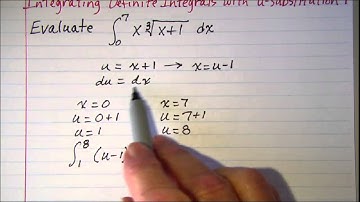 Integrating Definite Integrals with u-substitution
Evaluate ∫₀⁷ x ∛(x+1) dx
u = x+1 → x=u-1
du = dx
x=0 x=7
u=0+1 u=7+1
u=1 u=8
∫₁⁸ (u-1)